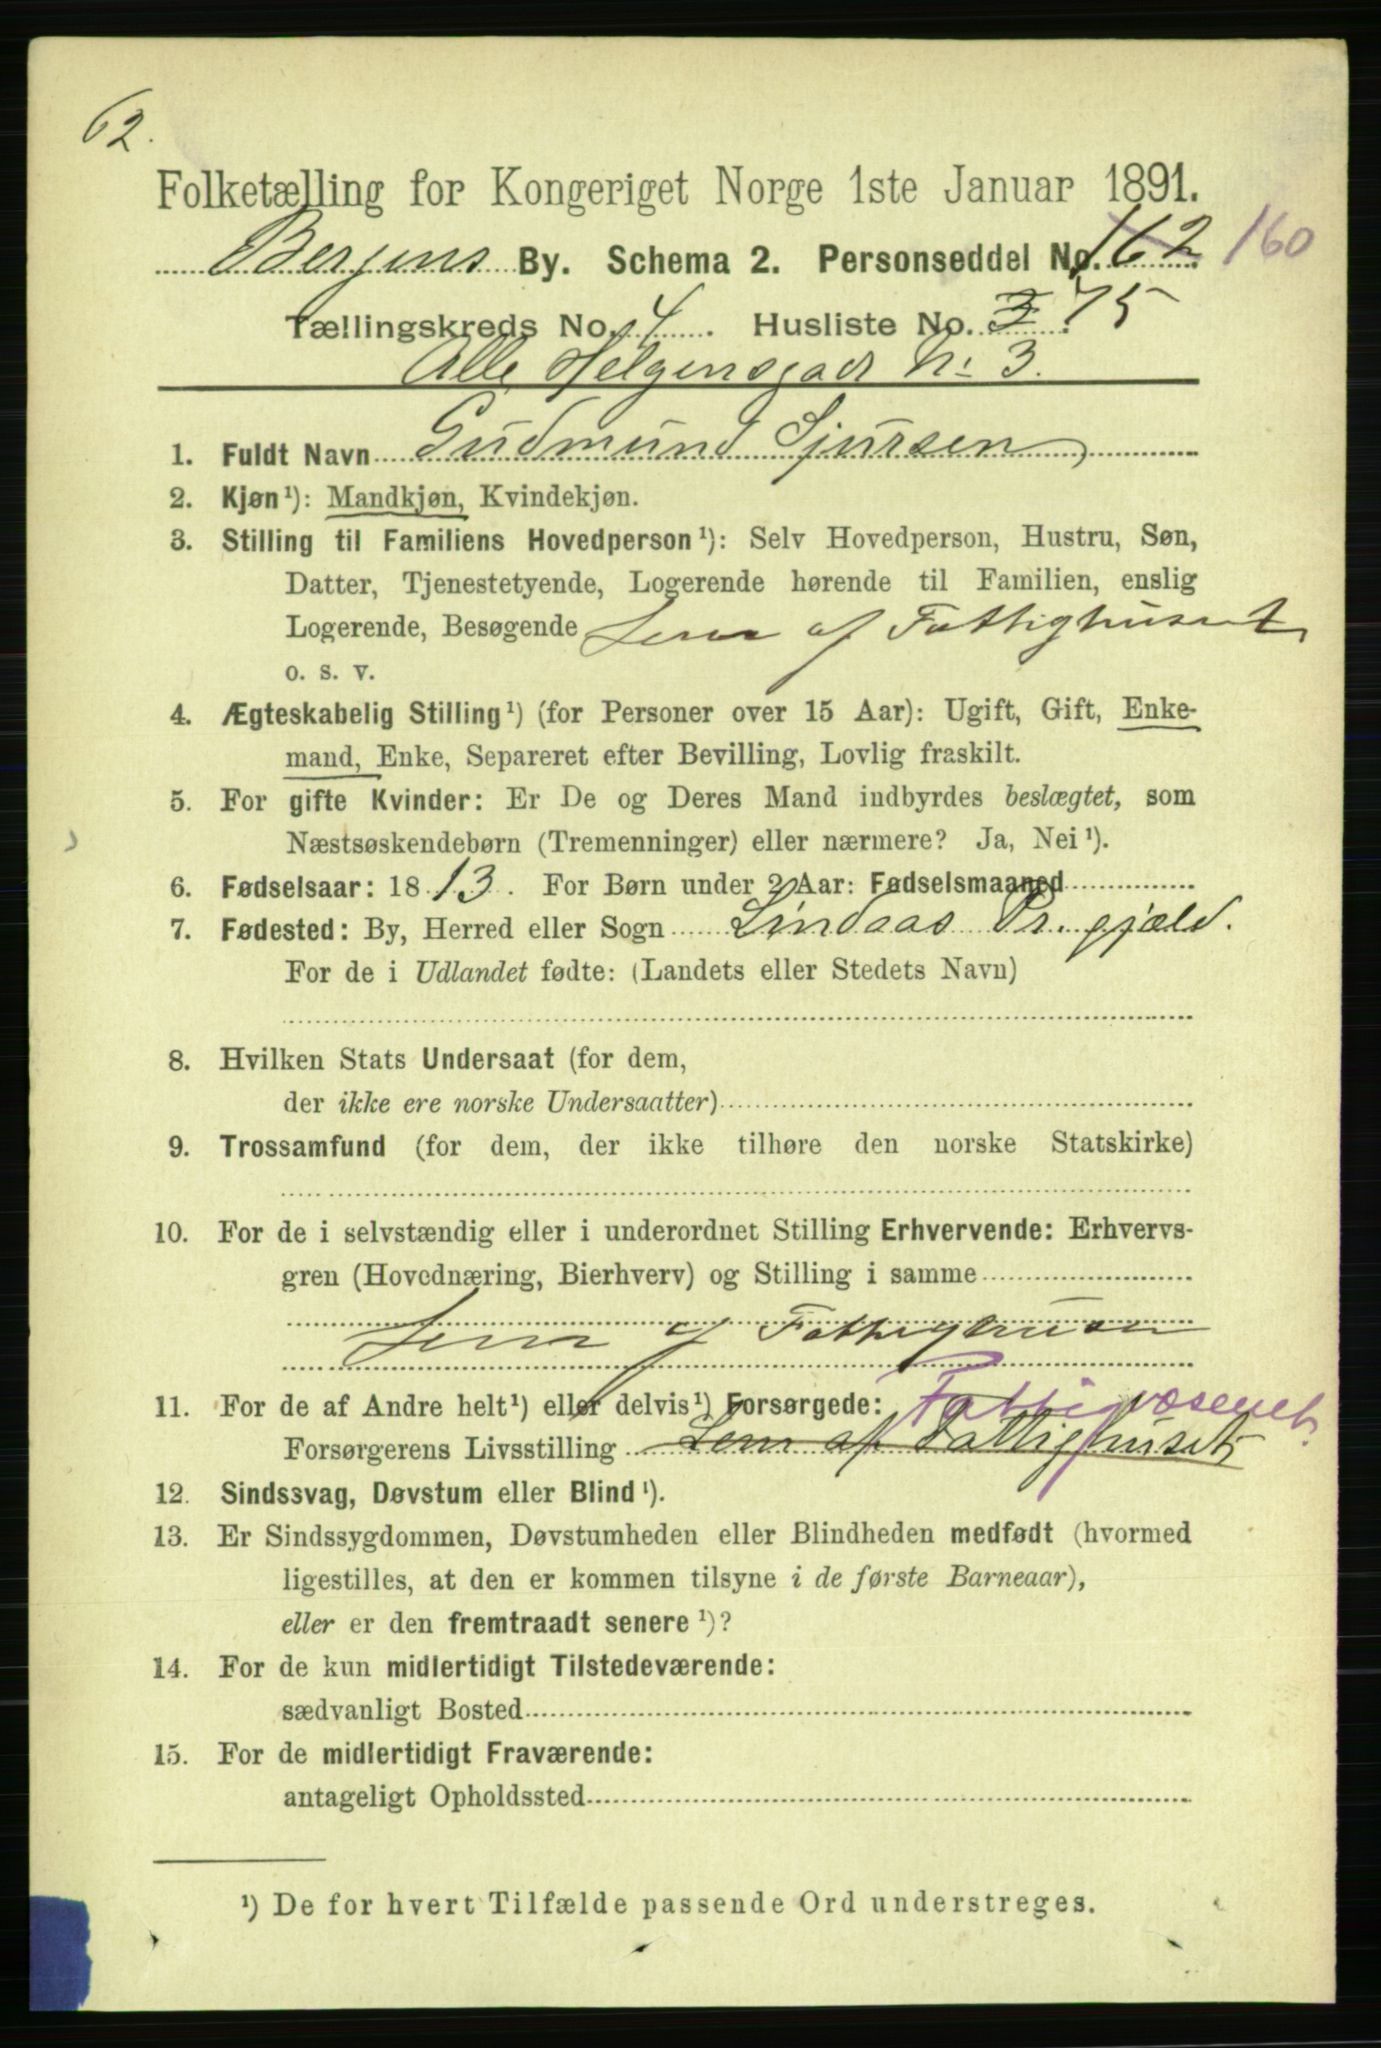 62.
Folketælling for Kongeriget Norge 1ste Januar 1891.
Bergens By. Schema 2. Personseddel No. 162 160
Tællingskreds No. 4. Husliste No. 3 75
Alle Helgensgade No: 3.
1. Fuldt Navn Gudmund Sjursen
2. Kjøn¹): Mandkjøn, Kvindekjøn.
3. Stilling til Familiens Hovedperson¹): Selv Hovedperson, Hustru, Søn,
Datter, Tjenestetyende, Logerende hørende til Familien, enslig
Logerende, Besøgende Lem af Fattighuset
o. s. v.
4. Ægteskabelig Stilling¹) (for Personer over 15 Aar): Ugift, Gift, Enke-
mand, Enke, Separeret efter Bevilling, Lovlig fraskilt.
5. For gifte Kvinder: Er De og Deres Mand indbyrdes beslægtet, som
Næstsøskendebørn (Tremenninger) eller nærmere? Ja, Nei¹).
6. Fødselsaar: 1813. For Børn under 2 Aar: Fødselsmaaned
7. Fødested: By, Herred eller Sogn Lindaas Pr.gjæld.
For de i Udlandet fødte: (Landets eller Stedets Navn)
8. Hvilken Stats Undersaat (for dem,
der ikke ere norske Undersaatter)
9. Trossamfund (for dem, der ikke tilhøre den norske Statskirke)
10. For de i selvstændig eller i underordnet Stilling Erhvervende: Erhvervs-
gren (Hovednæring, Bierhverv) og Stilling i samme
Lem af Fattighuset
11. For de af Andre helt¹) eller delvis¹) Forsørgede: Fattigvæsenet.
Forsørgerens Livsstilling Lem af Fattighuset
12. Sindssvag, Døvstum eller Blind¹).
13. Er Sindssygdommen, Døvstumheden eller Blindheden medfødt (hvormed
ligestilles, at den er kommen tilsyne i de første Barneaar),
eller er den fremtraadt senere¹)?
14. For de kun midlertidigt Tilstedeværende:
sædvanligt Bosted
15. For de midlertidigt Fraværende:
antageligt Opholdssted
¹) De for hvert Tilfælde passende Ord understreges.